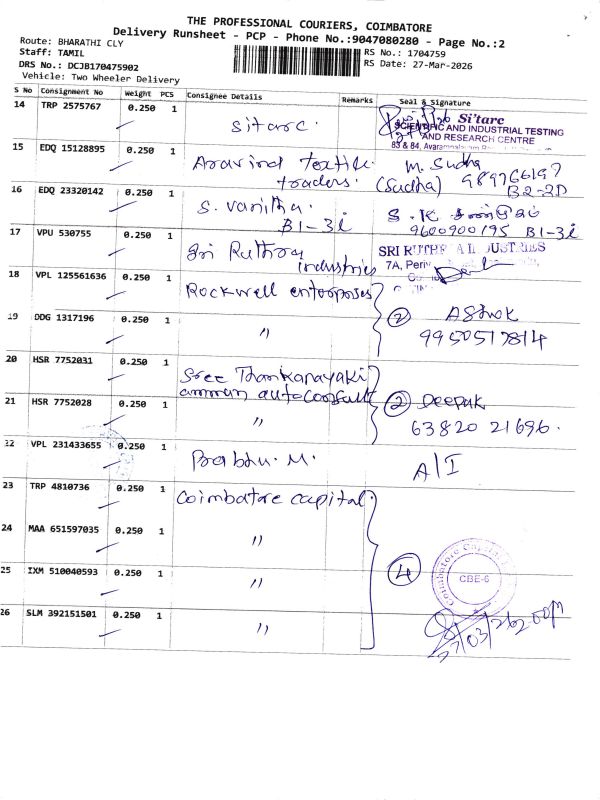 THE PROFESSIONAL COURIERS, COIMBATORE
Delivery Runsheet - PCP - Phone No.:9047080280 - Page No.:2
Route: BHARATHI CLY
Staff: TAMIL
RS No.: 1704759
DRS No.: DCJB170475902
RS Date: 27-Mar-2026
Vehicle: Two Wheeler Delivery
S No Consignment No Weight PCS Consignee Details Remarks Seal & Signature
14 TRP 2575767 0.250 1 Sitarc.
Si'tarc
SCIENTIFIC AND INDUSTRIAL TESTING
AND RESEARCH CENTRE
83 & 84, Avarampalayam
15 EDQ 15128895 0.250 1 Aravind textile traders. M. Sudha
(Sudha) 989766197
B2-2D
16 EDQ 23320142 0.250 1 S. Vanitha. B1-3i
9600900195 B1-3i
17 VPU 530755 0.250 1 Sri Ruthra industries
SRI RUTHRA INDUSTRIES
7A,
18 VPL 125561636 0.250 1 Rockwell enterprises
19 DDG 1317196 0.250 1 "
② Ashok
9950517814
20 HSR 7752031 0.250 1 Sree Thankanayaki
amman autoconsult
21 HSR 7752028 0.250 1 "
② Deepak
63820 21696.
22 VPL 231433655 0.250 1 Prabhu. M. A/I
23 TRP 4810736 0.250 1 Coimbatore capital.
24 MAA 651597035 0.250 1 "
25 IXM 510040593 0.250 1 "
④
Coimbatore Capital
CBE-6
26 SLM 392151501 0.250 1 "
27/03/26